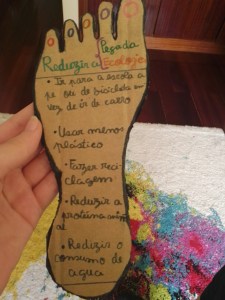 Reduzir a Pegada
Ecologic
• Ir para a escola a
pé ou de bicicleta em
vez de ir de carro
• Usar menos
plástico
• Fazer reci-
clagem
• Reduzir a
proteína anim
al
• Reduzir o
consumo de
agua